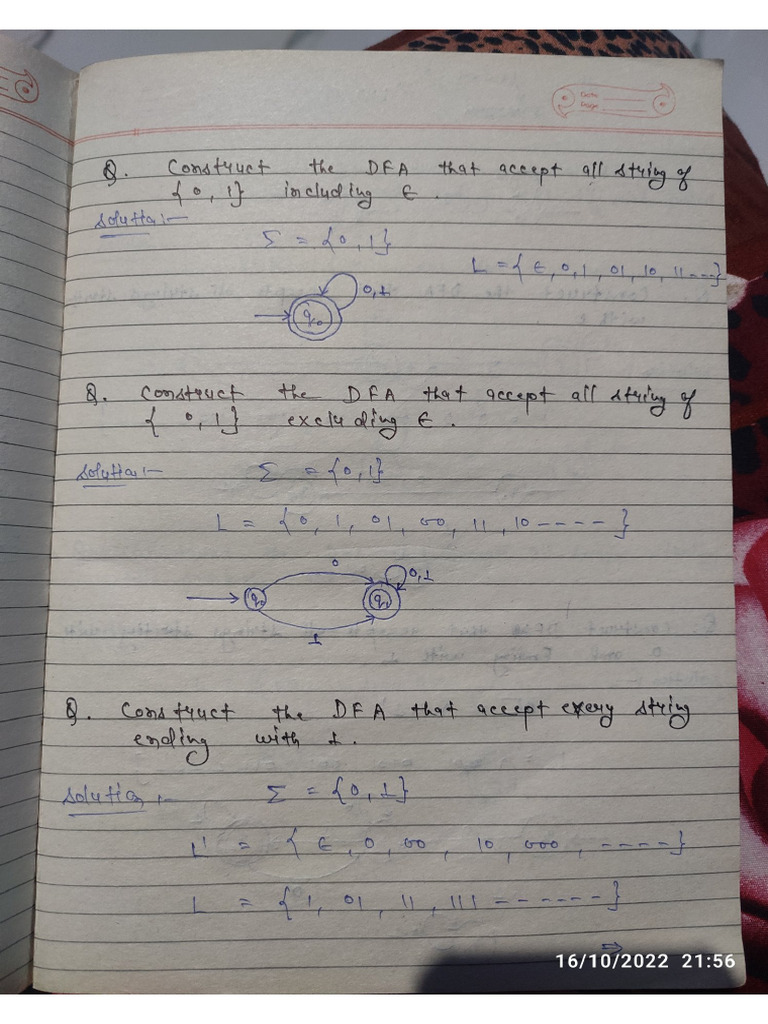 Date
Page
Q. Construct the DFA that accept all string of
{0, 1} including ε.
Solution:-
Σ = {0, 1}
L = {ε, 0, 1, 01, 10, 11 ---}
0, 1
q0
Q. Construct the DFA that accept all string of
{ 0, 1} excluding ε.
Solution:-
Σ = {0, 1}
L = {0, 1, 01, 00, 11, 10 ---- }
0
0, 1
q0 q1
1
Q. Construct the DFA that accept every string
ending with 1.
Solution:-
Σ = {0, 1}
L' = {ε, 0, 00, 10, 000, ----}
L = {1, 01, 11, 111 ------}
⇒
16/10/2022 21:56